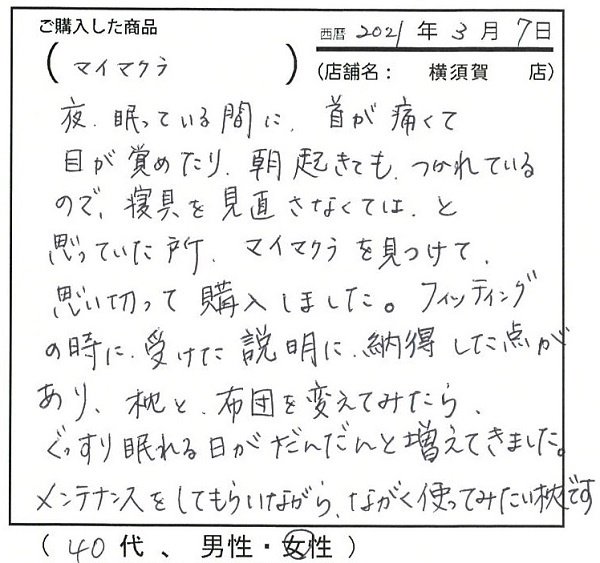 ご購入した商品
西暦 2021 年 3 月 7日
(マイマクラ)
(店舗名: 横須賀 店)
夜、眠っている間に、首が痛くて
目が覚めたり、朝起きても、つかれている
ので、寝具を見直さなくては、と
思っていた所、マイマクラを見つけて、
思い切って購入しました。フィッティング
の時に、受けた説明に、納得した点が
あり、枕と、布団を変えてみたら、
ぐっすり眠れる日がだんだんと増えてきました。
メンテナンスをしてもらいながら、ながく使ってみたい枕です
(40代、男性・女性)